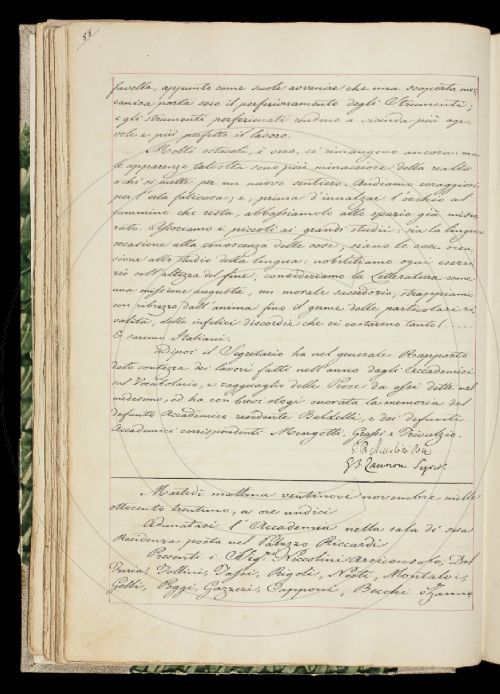 88
favella, appunto come suole avvenire che una scoperta mec
canica porta seco il perfezionamento degli Strumenti;
e gli strumenti perfezionati rendono a vicenda più age
vole e più perfetto il lavoro.
Molti ostacoli, è vero, ci rimangono ancora: ma
le apparenze talvolta sono più minacciose della realtà
a chi si mette per un nuovo sentiero. Andiamo coraggiosi
per l'erta faticosa; e, prima d'innalzar l'occhio al
cammino che resta, abbassiamolo allo spazio già misu
rato. Associamo i piccoli ai grandi studii: sia la lingua
occasione alla conoscenza delle cose, siano le cose occa
sione allo studio della lingua: nobilitiamo ogni eserci
zio coll'altezza del fine; consideriamo la Letteratura come
una missione augusta, un morale sacerdozio, strappiamo
con ribrezzo dall'anima fino il germe delle particolari ri
valità, delle infelici discordie che ci costarono tanto!.....
E saremo Italiani.
Indipoi il Segretario ha nel generale Rapporto
dato contezza dei lavori fatti nell'anno dagli Accademici
sul Vocabolario, e ragguaglio delle Prose da essi dette nel
medesimo, ed ha con brevi elogi onorata la memoria del
defunto Accademico residente Baldelli, e dei defunti
Accademici corrispondenti Mengotti, Grassi e Trivulzio.
G B Zannoni Segret.
Martedì mattina ventinove novembre mille
ottocento trentuno, a ore undici
Adunatasi l'Accademia nella sala di sua
Residenza posta nel Palazzo Riccardi
Presenti i Sigg.ri Niccolini Arciconsolo, Del
Furia, Follini, Tassi, Rigoli, Nesti, Montalvi,
Gelli, Poggi, Gazzeri, Capponi, Becchi Zanno